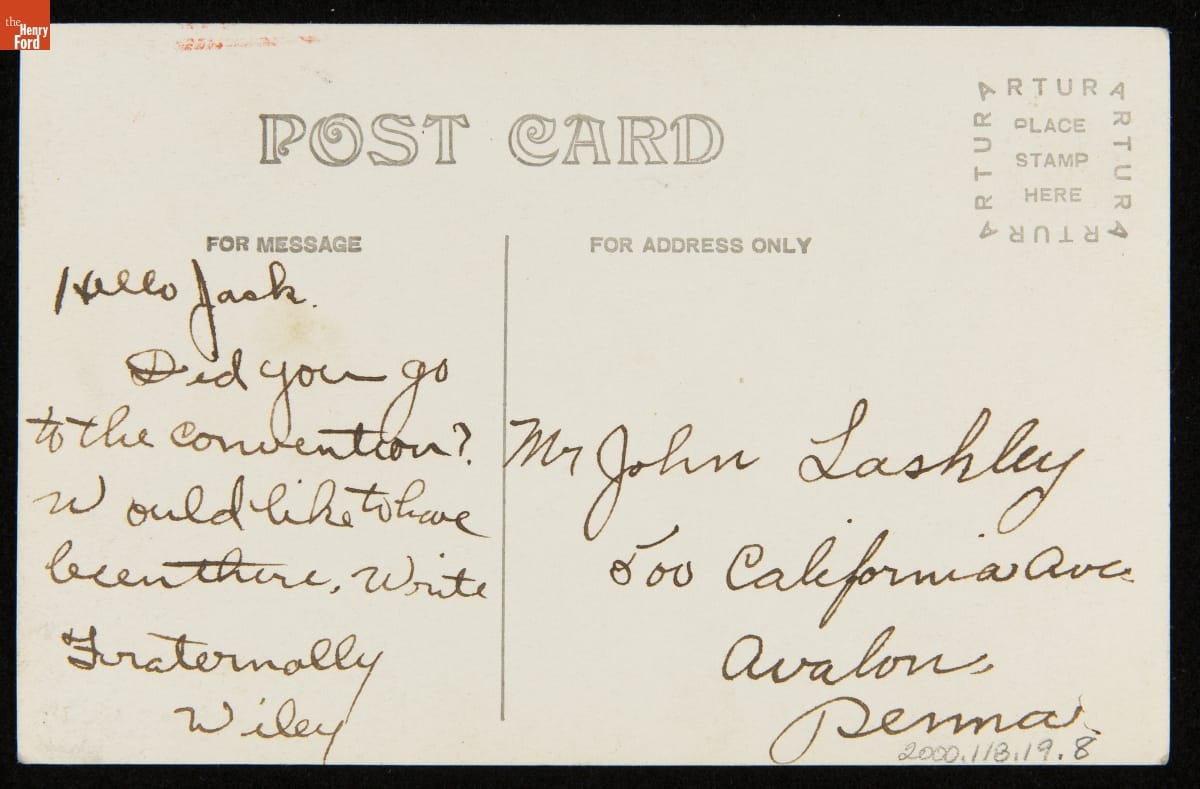 the
Henry
Ford
POST CARD
ARTURA
PLACE
STAMP
HERE
ARTURA
ARTURA
ARTURA
FOR MESSAGE
FOR ADDRESS ONLY
Hello Jack.
Did you go
to the convention?
Would like to have
been there. Write
Fraternally
Wiley
Mr John Lashley
500 California Ave
Avalon,
Penna.
2000.113.19.8